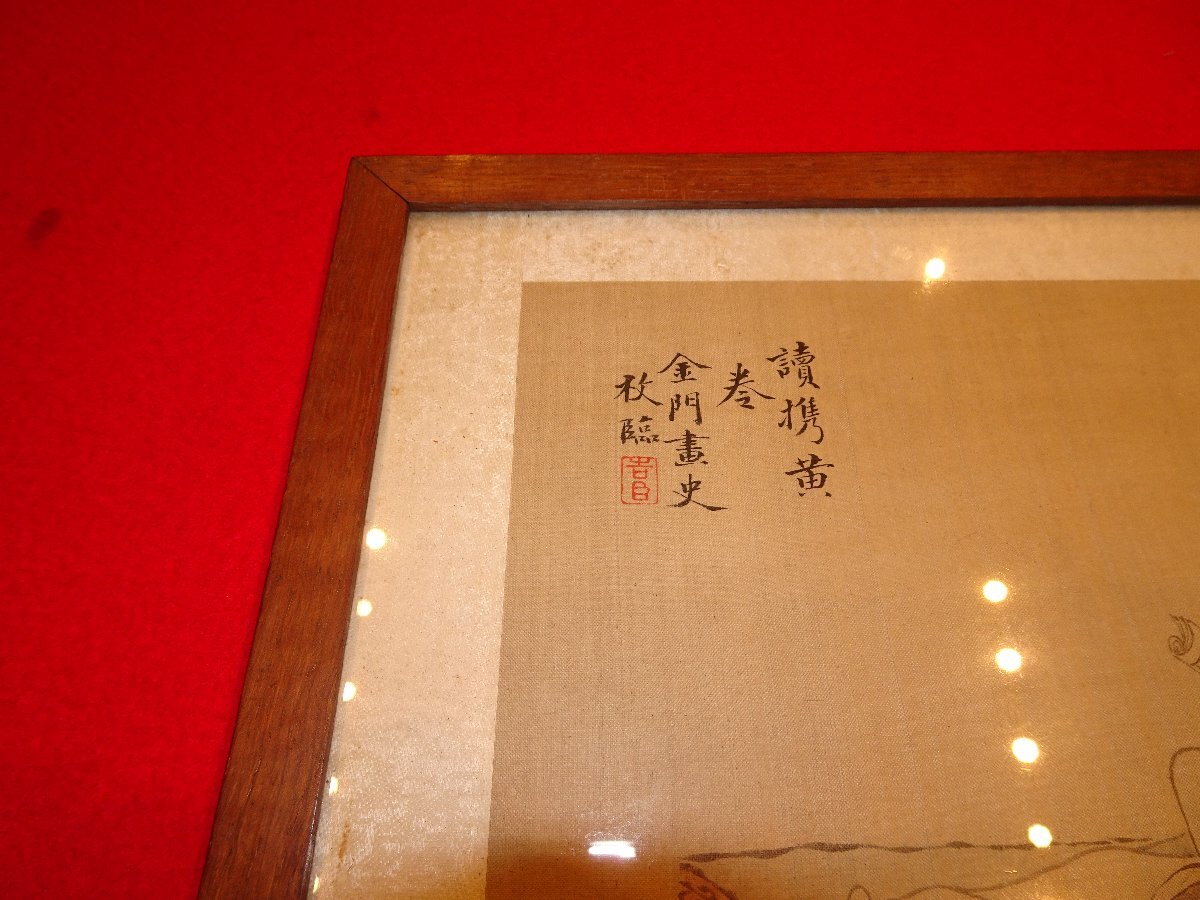 讀携黄
卷
金門畫史
枚臨